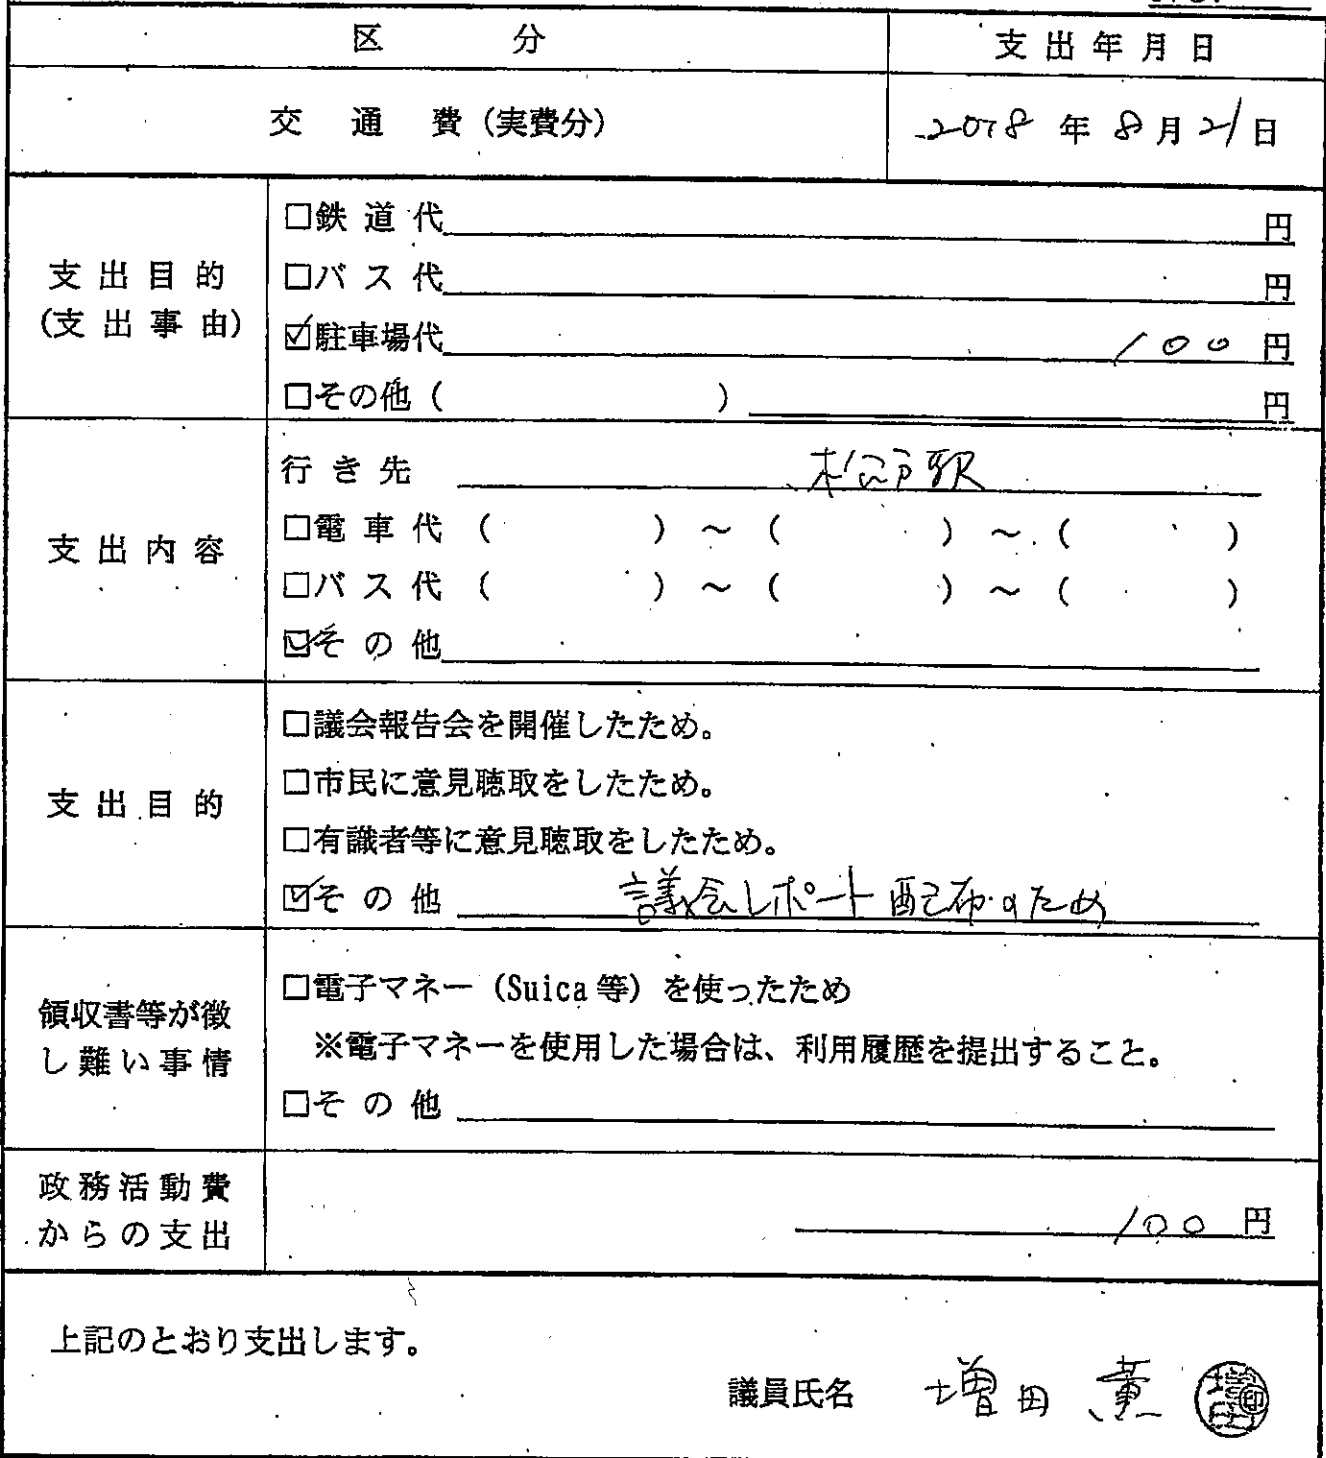 区 分 支出年月日
交 通 費（実費分） 2018 年 8 月 21 日
支出目的
（支出事由）
□鉄道代 円
□バス代 円
☑駐車場代 100 円
□その他（ ） 円
支出内容
行き先 松戸駅
□電車代（ ）～（ ）～（ ）
□バス代（ ）～（ ）～（ ）
☑その他
支出目的
□議会報告会を開催したため。
□市民に意見聴取をしたため。
□有識者等に意見聴取をしたため。
☑その他 議会レポート配布のため
領収書等が徴
し難い事情
□電子マネー（Suica等）を使ったため
※電子マネーを使用した場合は、利用履歴を提出すること。
□その他
政務活動費
からの支出
100 円
上記のとおり支出します。
議員氏名 増田 薫 印